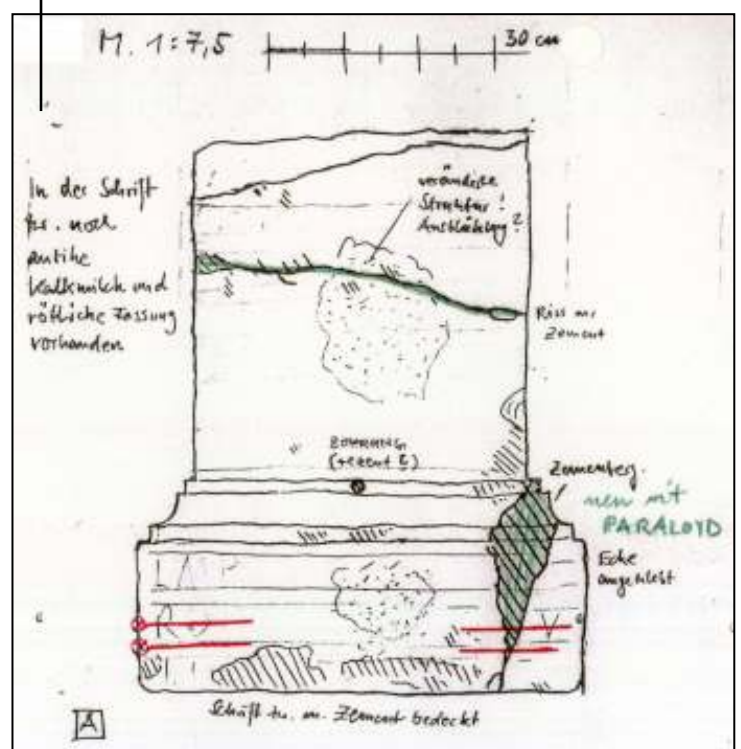 M. 1:7,5
30 cm
In der Schrift
tw. noch
antike
Kalkmilch und
rötliche Fassung
vorhanden
veränderte
Struktur!
Ausblühung?
Riss m.
Zement
BOHRUNG
(rezent?)
Zementerg.
neu mit
PARALOYD
Ecke
angeklebt
V
Schrift tw. m. Zement bedeckt
A